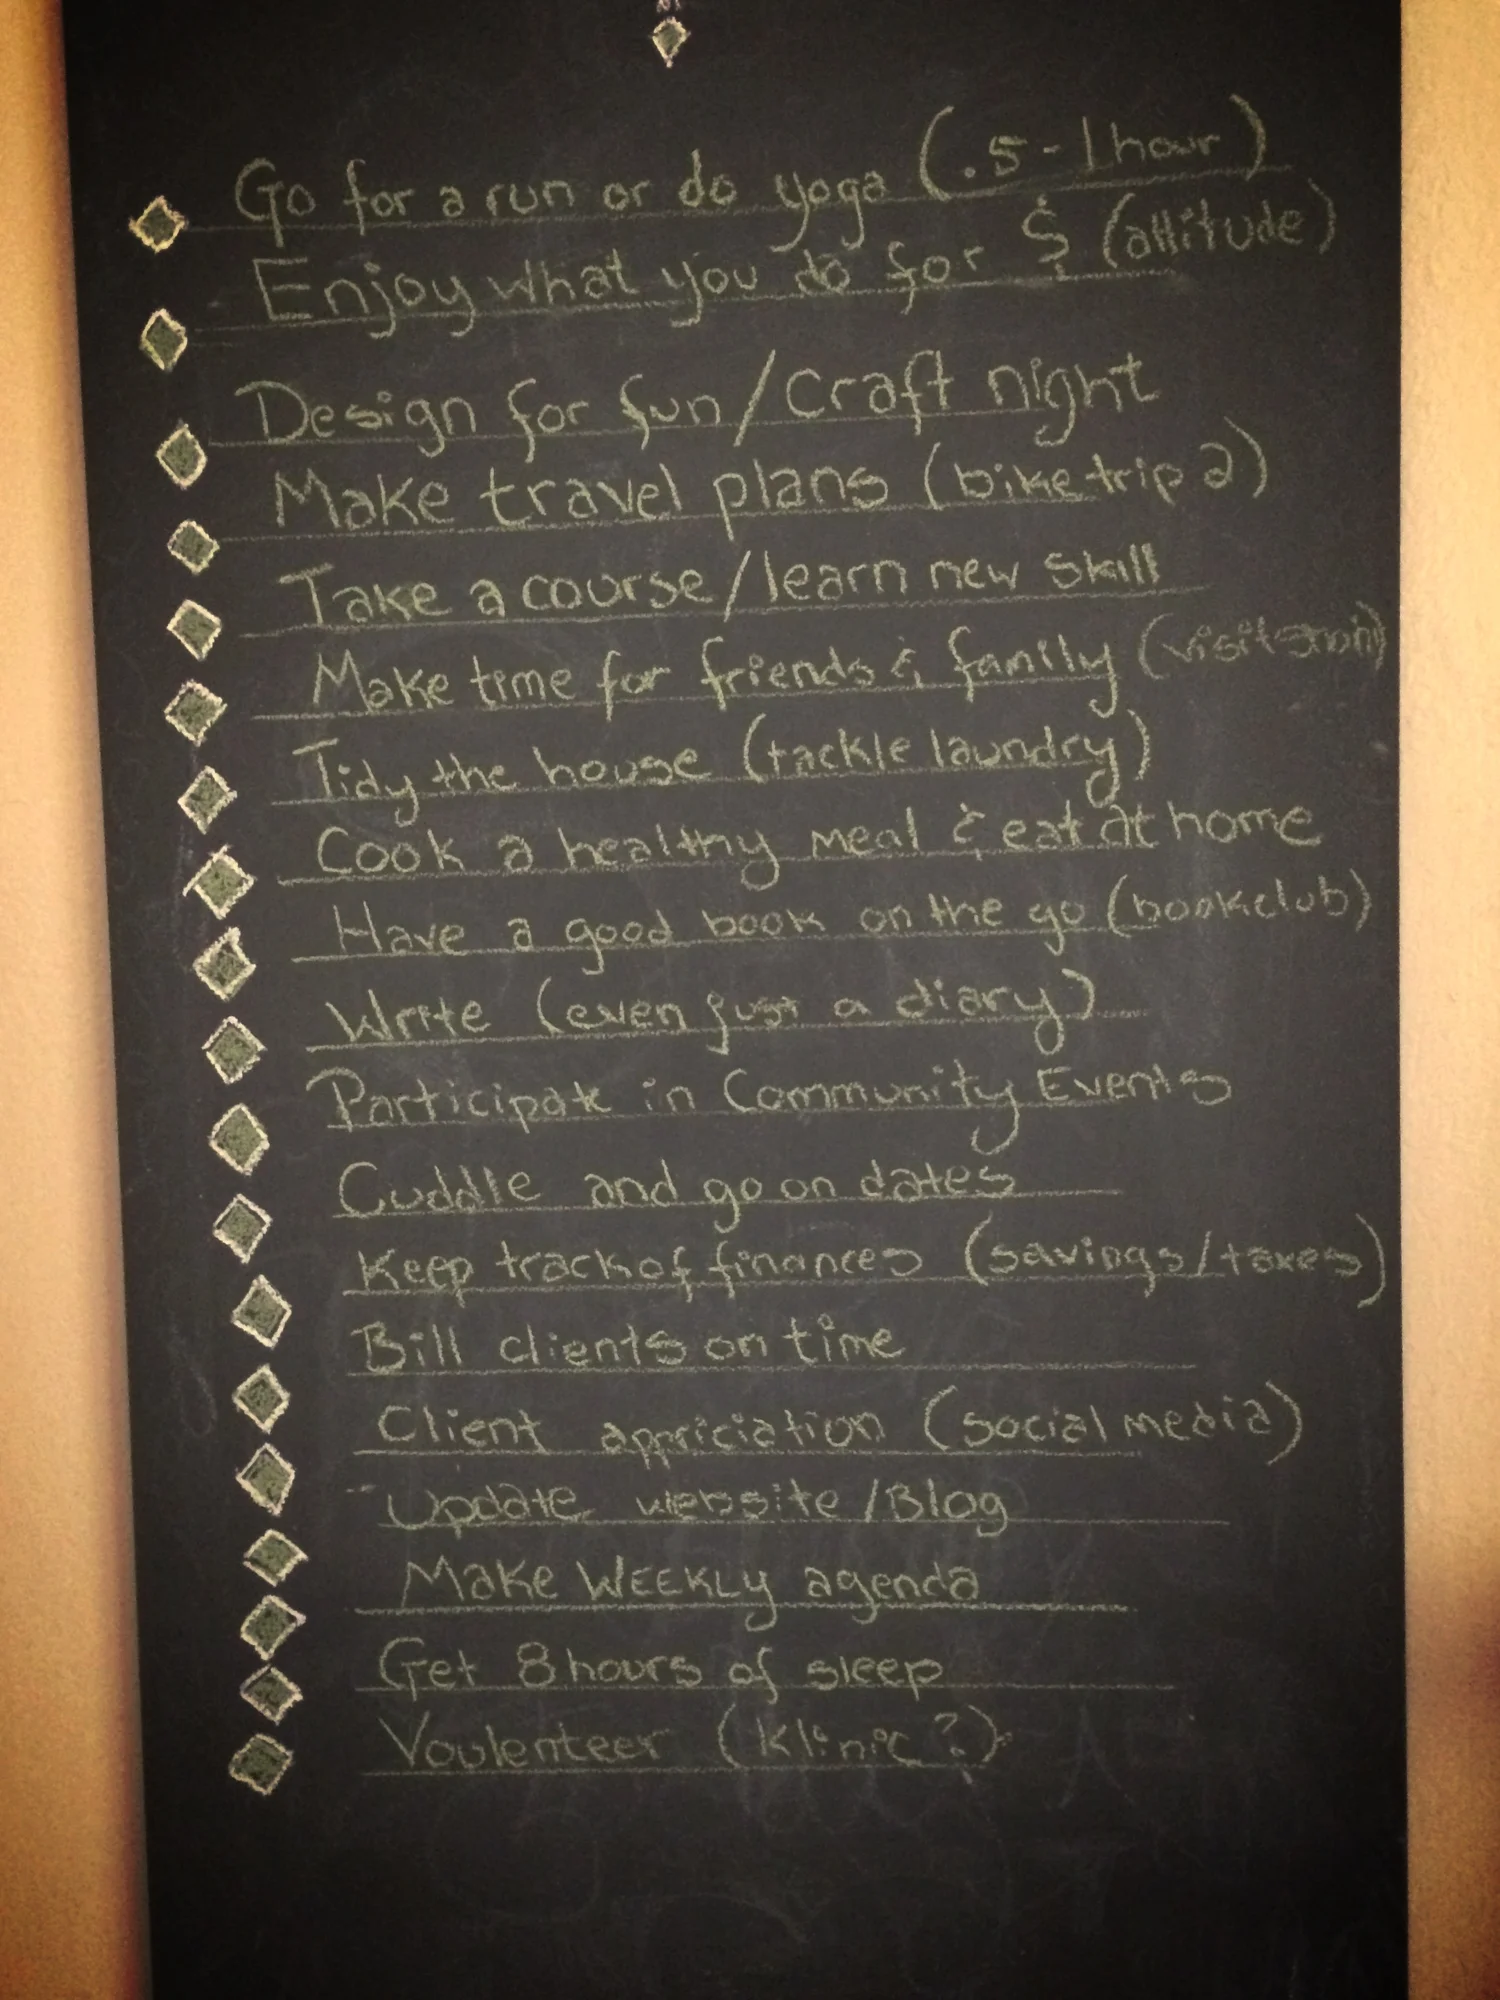 Go for a run or do yoga (.5-1 hour)
Enjoy what you do for $ (attitude)
Design for fun/Craft night
Make travel plans (bike trip 2)
Take a course/learn new skill
Make time for friends & family (visit
Tidy the house (tackle laundry)
Cook a healthy meal & eat at home
Have a good book on the go (bookclub)
Write (even just a diary)
Participate in Community Events
Cuddle and go on dates
Keep track of finances (savings/taxes)
Bill clients on time
Client appriciation (social media)
Update website/Blog
Make WEEKLY agenda
Get 8 hours of sleep
Voulenteer (Klinic?)